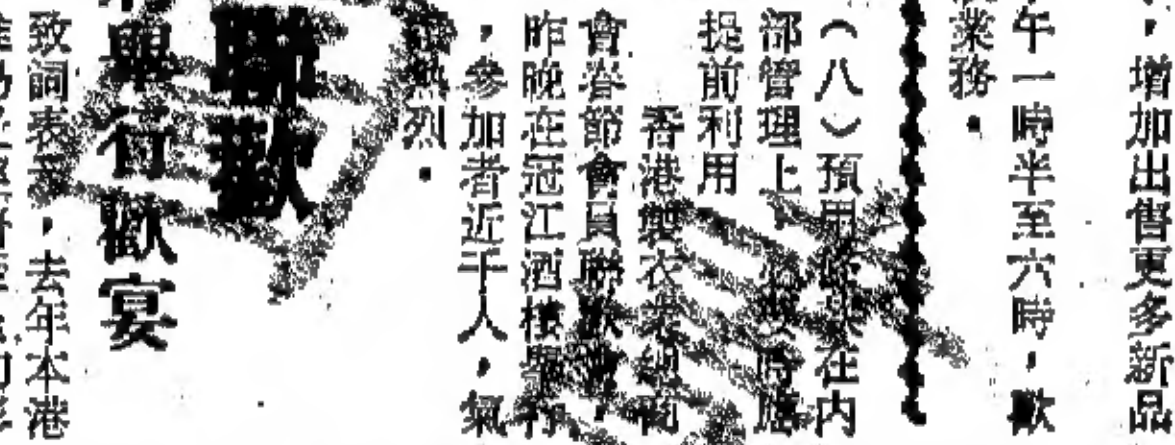 ，增加出售更多新品
午一時半至六時，歡
業務．
（八）預用在內
部管理上，時應
提前利用
香港製衣業總商
會春節會員聯歡會，
昨晚在冠江酒樓舉行
，參加者近千人，氣
熱烈．
聯歡
行歡宴
致詞表示，去年本港